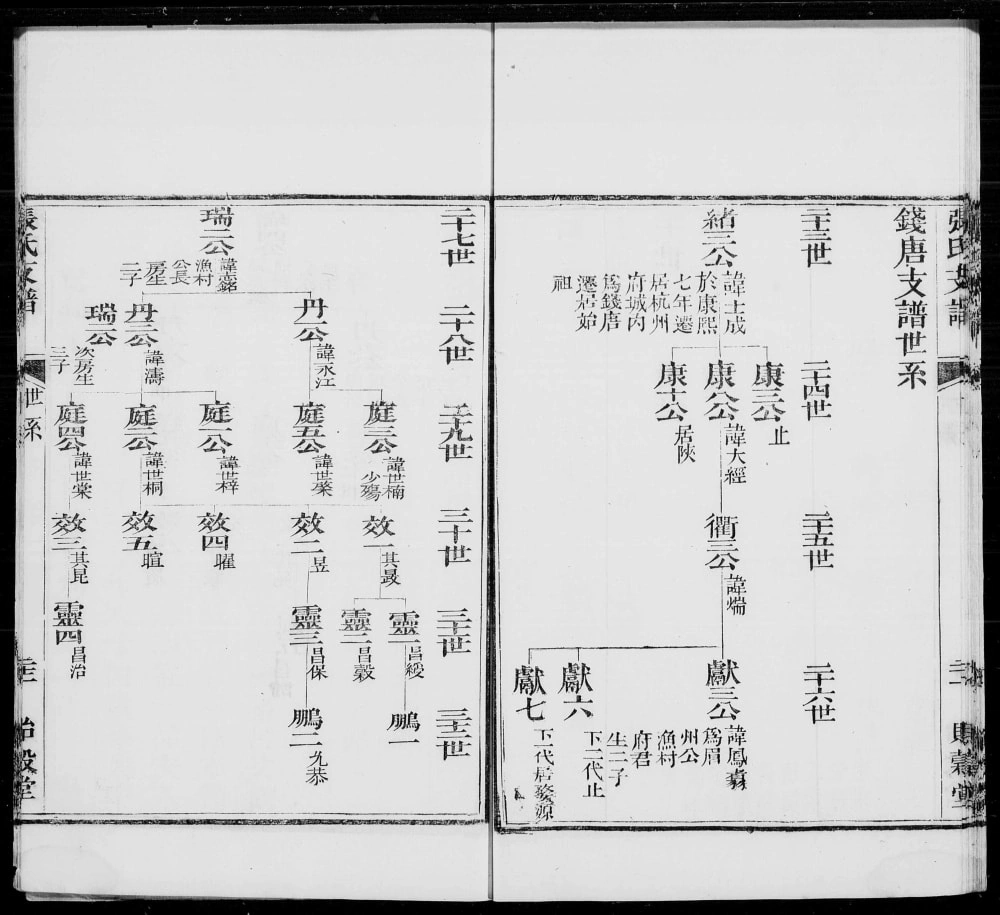 張氏支譜
二
貽穀堂
錢唐支譜世系
二十三世
二十四世
二十五世
二十六世
緒三公
諱士成
於康熙
七年遷
居杭州
府城內
爲錢唐
遷居始
祖
康三公
止
康公公
諱大經
康十公
居陝
衢三公
諱煓
獻三公
爲眉
州公
漁村
府君
生二子
獻六
下二代止
獻七
下二代居婺源
二十七世
二十八世
二十九世
三十世
三十一世
三十二世
瑞二公
漁村
公長
房生
二子
丹一公
諱永江
丹三公
諱濤
瑞二公
次房生
三子
庭三公
諱世楠
少殤
庭五公
諱世榮
庭一公
諱世梓
庭三公
諱世桐
庭四公
諱世棠
效一
其晸
效二
昱
效四
曜
效五
暄
效三
其昆
靈一
昌綬
靈二
昌穀
靈三
昌保
靈四
昌治
鵬一
鵬二
九恭
張氏支譜
世系
三
貽穀堂